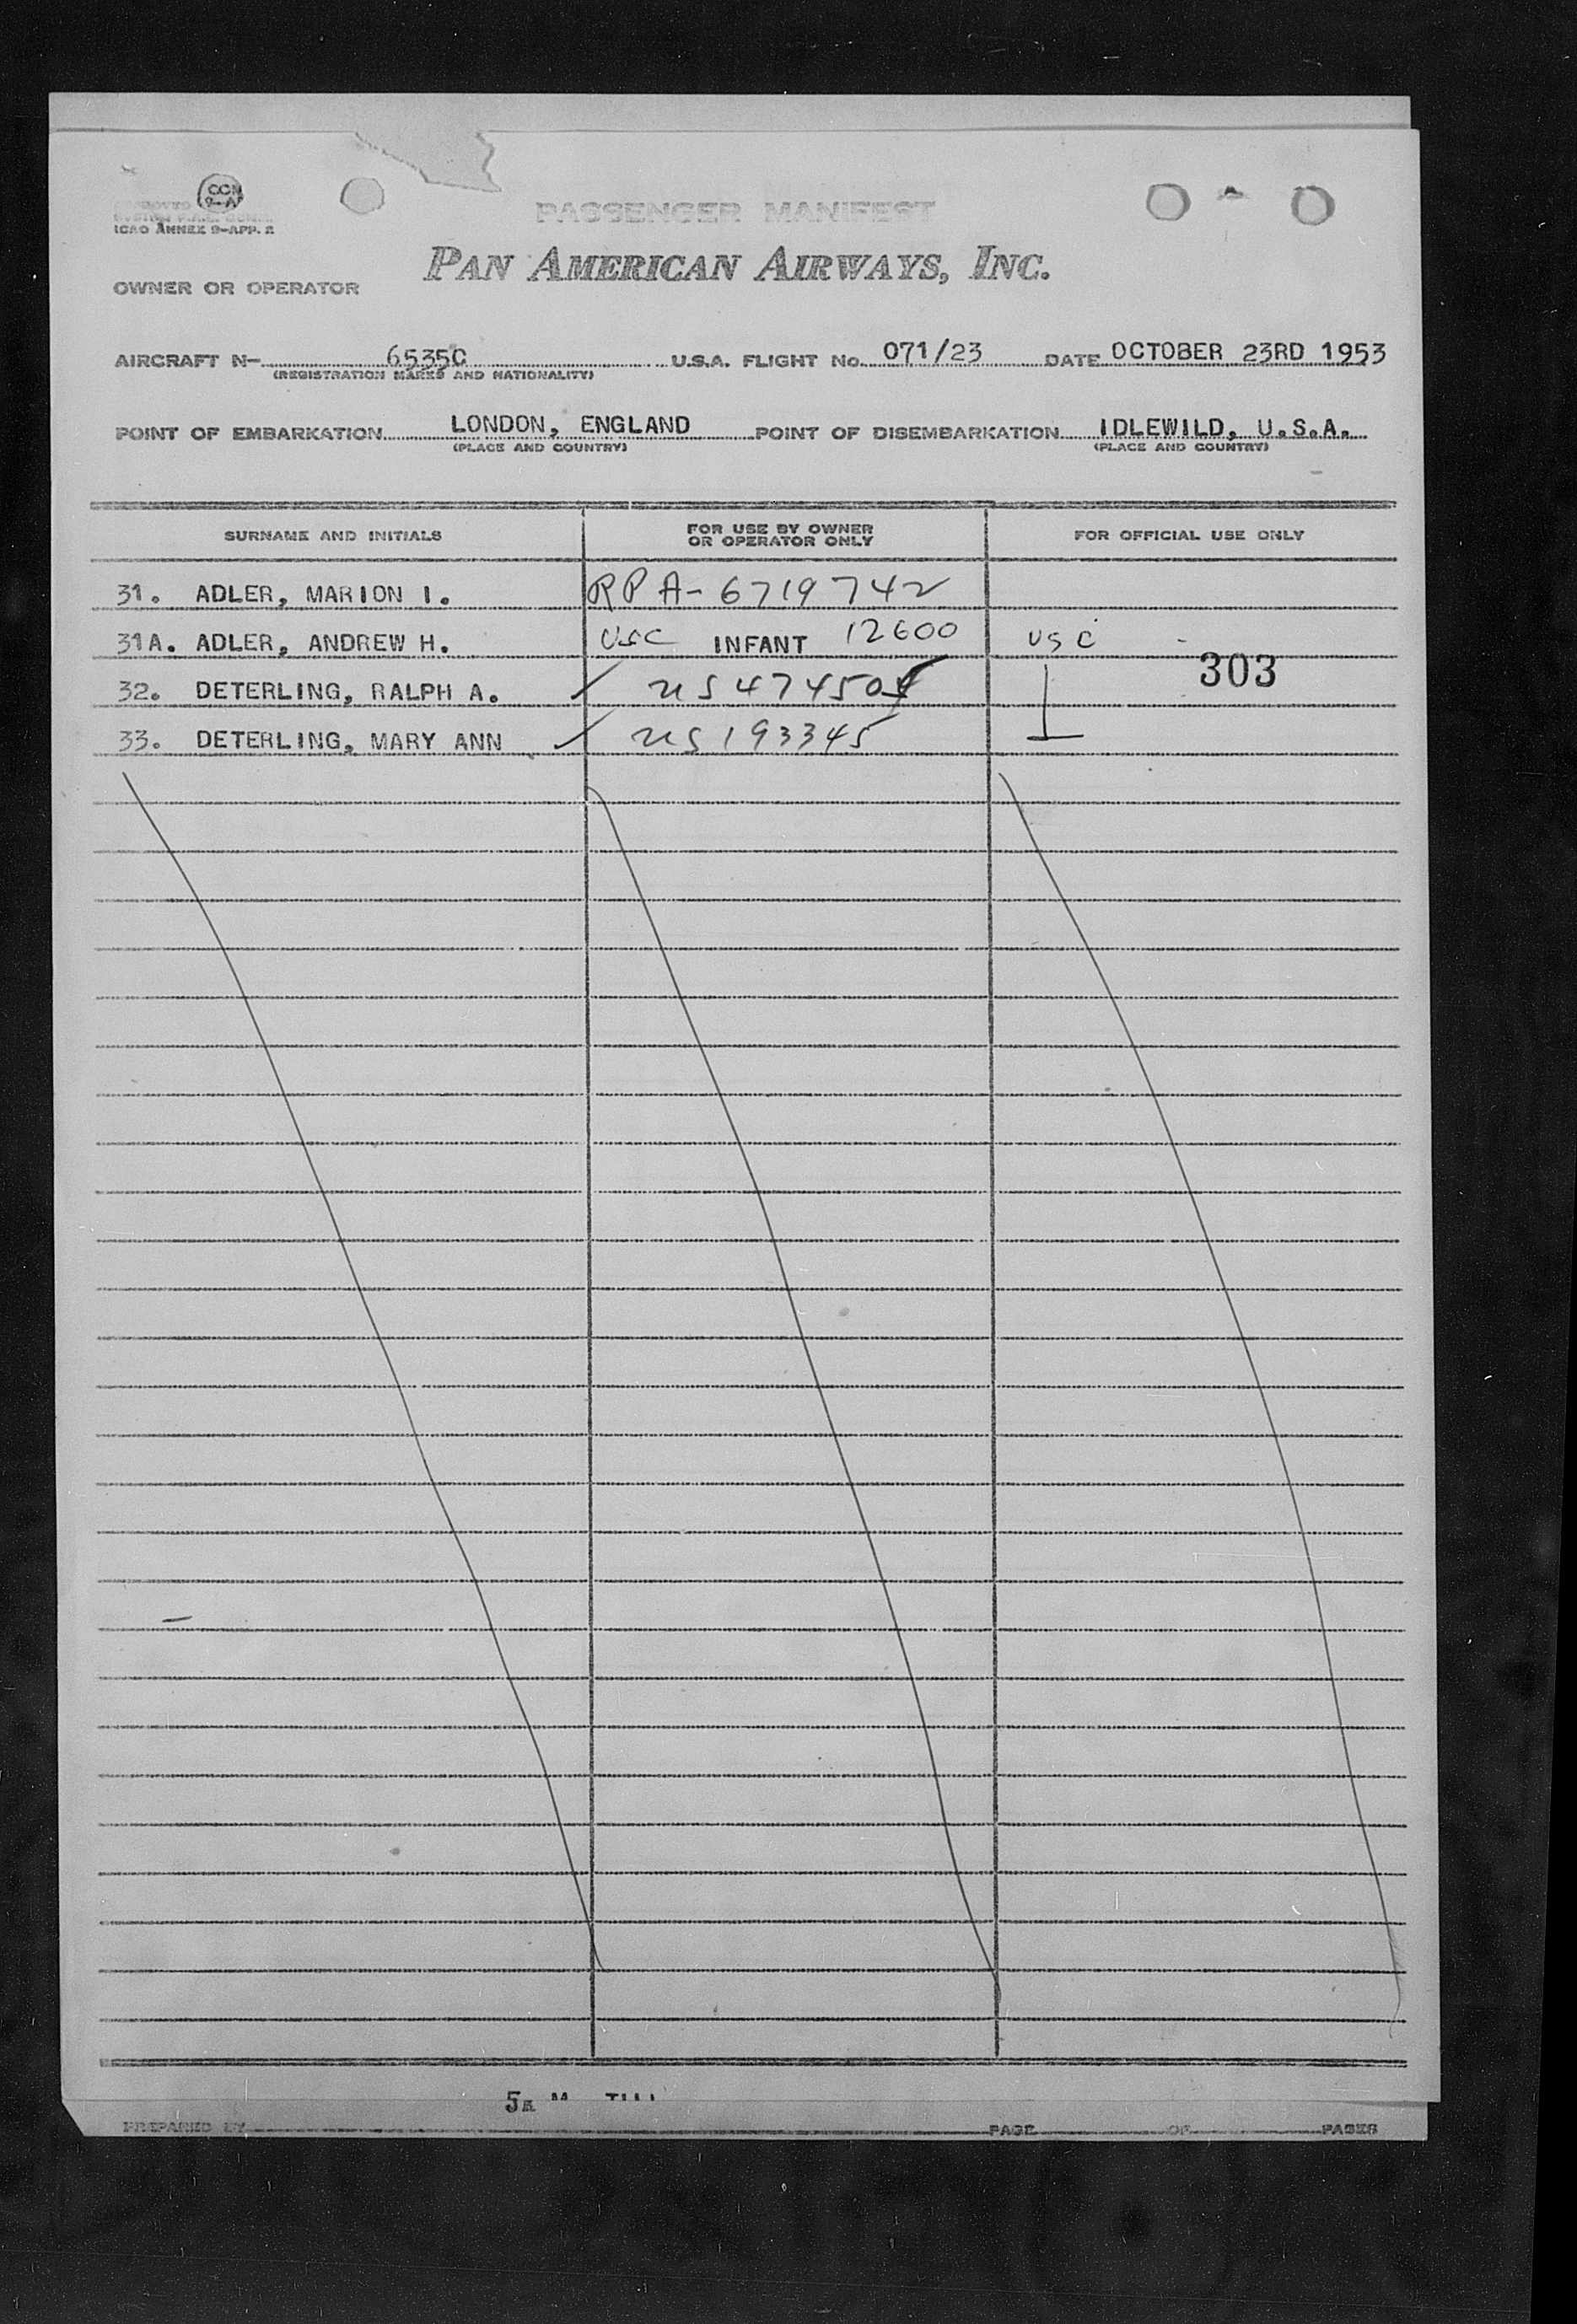 CCN
9-A
ICAO ANNEX 9-APP. 2
PASSENGER MANIFEST
PAN AMERICAN AIRWAYS, INC.
OWNER OR OPERATOR
AIRCRAFT N- 6535C U.S.A. FLIGHT No. 071/23 DATE OCTOBER 23RD 1953
(REGISTRATION MARKS AND NATIONALITY)
POINT OF EMBARKATION LONDON, ENGLAND POINT OF DISEMBARKATION IDLEWILD, U.S.A.
(PLACE AND COUNTRY) (PLACE AND COUNTRY)
SURNAME AND INITIALS FOR USE BY OWNER OR OPERATOR ONLY FOR OFFICIAL USE ONLY
31. ADLER, MARION I. RP A-6719742
31A. ADLER, ANDREW H. USC INFANT 12600 USC
303
32. DETERLING, RALPH A. US 474504
33. DETERLING, MARY ANN US 193345
PREPARED BY PAGE OF PAGES